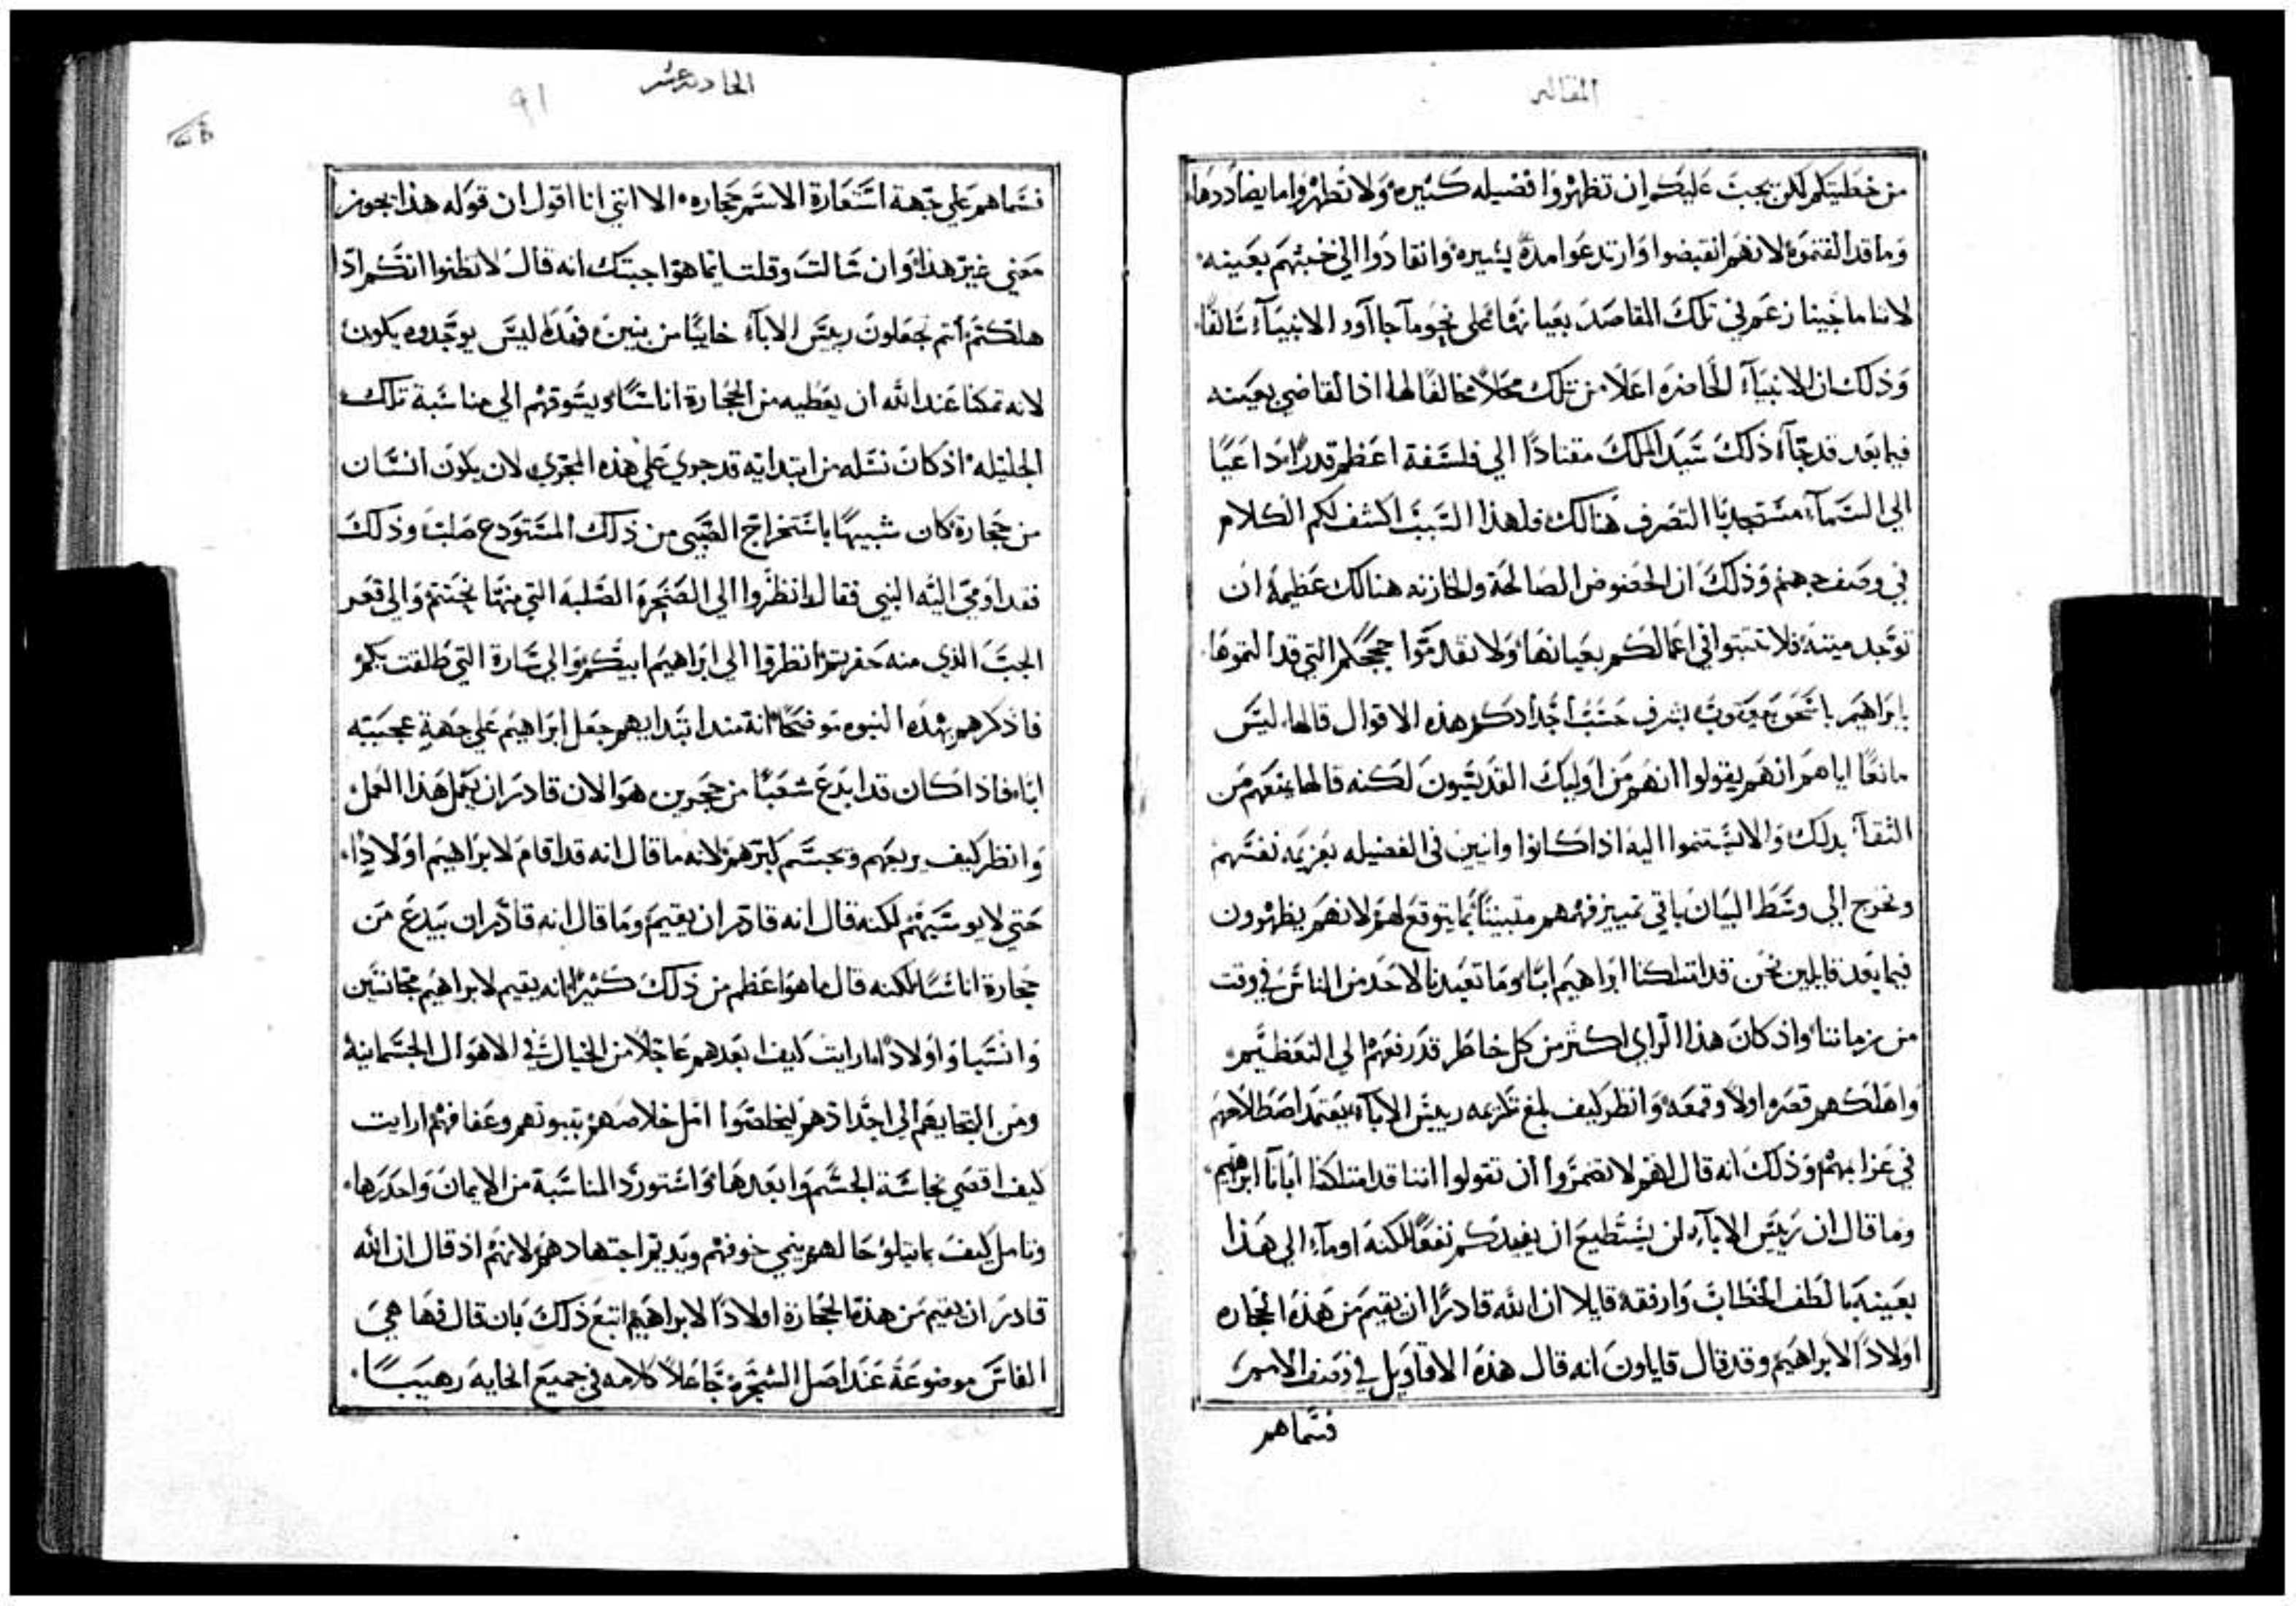 المقاله
من خطيتكم لكن يجب عليكم ان تظهروا فضيله كثيره ولا تظهروا ما يضاددها
وما قد الفتموه لانهم انقبضوا وارتدعوا مدة يسيره وانقادوا الي خبثهم بعينه
لاننا ما جينا زعم في تلك المقاصد بعيانها علي نحو ما جا آور الانبياء سالفا
وذلك ان الانبياء الحاضره اعلا من تلك محلا مخالفا لها اذ القاضي بعينه
فيما بعد قد جاء ذلك سيد الملك مقتادا الي فلسفة اعظم قدرا داعيا
الي السماء مستجدبا التصرف هنالك فلهذا السبب اكشف لكم الكلام
في وصف جهنم وذلك ان الحضوض الصالحة والخازنه هنالك عظيمة ان
توجد ميتة فلا تثبتوا في اعمالكم بعيانها ولا تقدموا حججكم التي قد الفتموها
بابراهيم باسحق بيعقوب بشرف حسب اجدادكم هذه الاقوال قالها ليس
مانعا اياهم انهم يقولوا انهم من اوليك القديسون لكنه قالها يمنعهم من
الثقآ بذلك والا يستنموا اليه اذا كانوا وانيين في الفضيله بعزيمه نفسهم
ونخرج الي وسط البيان باقي تمييز فهمهم متبيننا بما يتوقع لهم لانهم يظهرون
فيما بعد قايلين نحن قد امتلكنا ابراهيم ابا وما تعبدنا لاحد من الناس في وقت
من زماننا واذ كان هذا الراي اكثر من كل خاطر قد رفعهم الي التعظيم
واهلكهم قعره اولا وقمعه وانظر كيف بلغ تكريمه رييس الابآء يعتمد اصطلاحهم
في عزابهم وذلك انه قال لهم لا تضمروا ان تقولوا اننا قد امتلكنا ابانا ابرهيم
وما قال ان رييس الابآء لن يستطيع ان يفيدكم نفعا لكنه اومآء الي هذا
بعينه بالطف الخطاب وارفقه قايلا ان الله قادرا ان يقيم من هذه الحجاره
اولادا لابراهيم وقد قال قايلون انه قال هذه الاقاويل في وصف الامم
فسماهم
الحاديه عشر
91
فسماهم علي جهة استعارة الاسم حجاره الا انني انا اقول ان قوله هذا يجوز
معني غير هذا وان سالت وقلت ايما هو اجبتك انه قال لا تظنوا انكم اذا
هلكتم انتم تجعلون رييس الابآء خاليا من بنين فهذا ليس يوجد ويكون
لانه تمكنا عند الله ان يعطيه من الحجارة اناسا ويسوقهم الي مناسبة تلك
الجليله اذ كان نسله من ابتدايه قد جري علي هذه المجري لان يكون انسان
من حجارة كان شبيها باستخراج الصبي من ذلك المستودع صلب وذلك
فقد اومي اليه النبي فقال انظروا الي الصخرة الصلبه التي منها نحتتم والي قعر
الجب الذي منه حفرتم انظروا الي ابراهيم ابيكم والي سارة التي طلقت بكم
فاذكرهم بهذه النبوه موضحا انه منذ ابتدايهم جعل ابراهيم علي جهة عجيبه
ابا فاذا كان قد ابدع شعبا من حجرين هو الان قادر ان يعمل هذا العمل
وانظر كيف يربعهم ويحسم كبرهم لانه ما قال انه قد اقام لابراهيم اولادا
حتي لا يوسيهم لكنه قال انه قادر ان يقيم وما قال انه قادر ان يبدع من
حجارة اناسا لكنه قال ما هو اعظم من ذلك كثيرا انه يقيم لابراهيم مجانسين
وانسبا واولادا ارايت كيف ابعدهم عاجلا من الخيال في الاهوال الجسمانيه
ومن التجايهم الي اجدادهم ليخلصوا امل خلاصهم بتبوتهم وعفافهم ارايت
كيف اقصي نجاسة الجسم وابعدها واستورد المناسبة من الايمان واحدرها
وتامل كيف بما يتلو حالهم ينمي خوفهم ويديم اجتهادهم لانهم اذ قال ان الله
قادر ان يقيم من هذه الحجارة اولادا لابراهيم اتبع ذلك بان قال فها هي
الفاس موضوعة عند اصل الشجرة جاعلا كلامه في جميع الحايه رهيبا